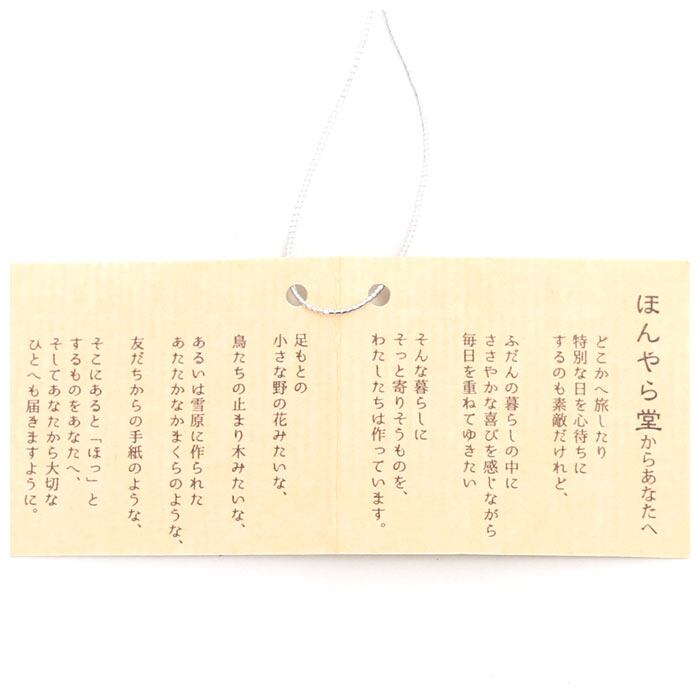 ほんやら堂からあなたへ
どこかへ旅したり
特別な日を心待ちに
するのも素敵だけれど、
ふだんの暮らしの中に
ささやかな喜びを感じながら
毎日を重ねてゆきたい
そんな暮らしに
そっと寄りそうものを、
わたしたちは作っています。
足もとの
小さな野の花みたいな、
鳥たちの止まり木みたいな、
あるいは雪原に作られた
あたたかなかまくらのような、
友だちからの手紙のような、
そこにあると「ほっ」と
するものをあなたへ、
そしてあなたから大切な
ひとへも届きますように。